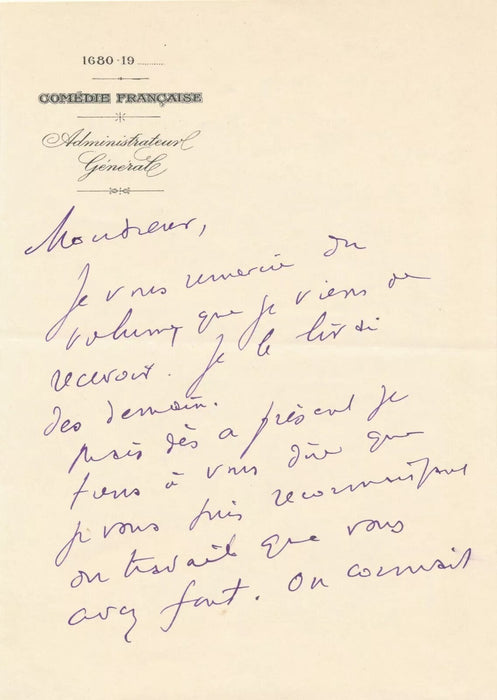 1680-19........
COMÉDIE FRANÇAISE
Administrateur
Général
Monsieur,
Je vous remercie du
volume que je viens de
recevoir. Je le lirai
dès demain.
Mais dès à présent je
tiens à vous dire que
je vous suis reconnaissant
du travail que vous
avez fait. On connait